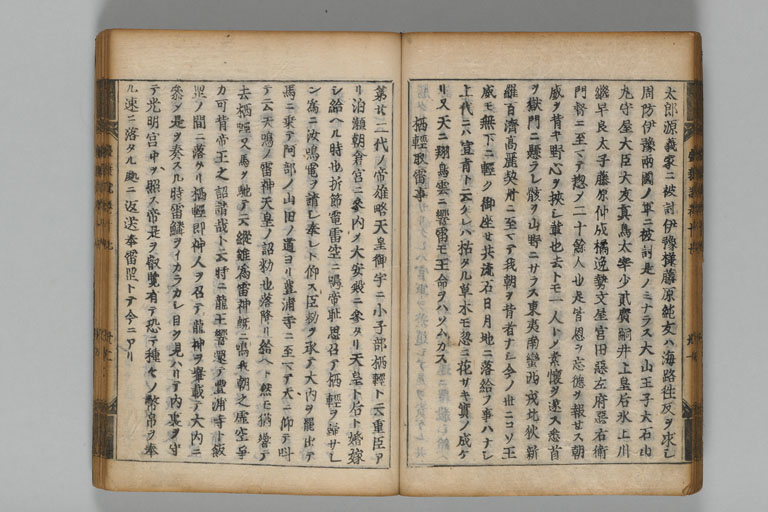 太郎源義家ニ被討伊豫掾藤原純友ハ海路往反ヲ求シ
周防伊豫両國ノ軍ニ被討是ノミナラス大山王子大石山
丸守屋大臣大友真鳥太宰少貳廣嗣井上皇后氷上川
繼早良太子藤原仲成橘逸勢文屋宮田惡左府惡右衛
門督ニ至マテ惣ノ二十餘人也是皆恩ヲ忘德ヲ報セス朝
威ヲ背キ野心ヲ挾シ輩也去トモ一人トノ素懷ヲ遂ス悉首
ヲ獄門ニ懸ラレ骸ヲ山野ニサラス東夷南蠻西戎北狄新
羅百濟高麗契丹ニ至マテ我朝ヲ背者ナシ今ノ世ニコソ王
威モ無下ニ輕ク御坐セ共流石日月地ニ落給フ事ハナシ
上代ニハ宣旨ト云ケレハ枯タル草木モ忽ニ花サキ實ノ成ケ
リ又天ニ翔鳥雲ニ響雷モ王命ヲハソムカス
栖輕取雷事
第廿二代ノ帝雄略天皇御宇ニ小子部栖輕ト云重臣ア
リ泊瀬朝倉宮ニ參内ノ大安殿ニ參タリ天皇ト后ト婚嫁
シ給ヘル時也折節電雷空ニ鳴帝耻思召テ栖輕ヲ歸サレ
ン為ニ汝鳴雷ヲ請シ奉レト仰ス臣勅ヲ承テ大内ヲ罷出テ
馬ニ乘テ阿部ノ山田ノ道ヨリ豊浦寺ニ至マテ天ニ仰テ叫
テ云天鳴ノ雷神天皇ノ詔勅也落降リ給ヘト然モ猶響テ
去栖輕又馬ヲ馳テ云縱雖為雷神既ニ鳴我朝之虚空爭
カ可背帝王之詔請哉ト云時ニ龍王響還テ豊浦寺ト飯
罡ノ間ニ落タリ栖輕即神人ヲ召テ龍神ヲ轝載テ大内ニ
參ノ是ヲ奏スル時雷鱗ヲイカラカシ目ヲ見ハリテ内裏ヲ守
テ光明宮中ヲ照ス帝是ヲ叡覧有テ恐テ種々ノ幣帛ヲ奉
ル速ニ落タル處ニ返送奉雷罡トテ今ニアリ